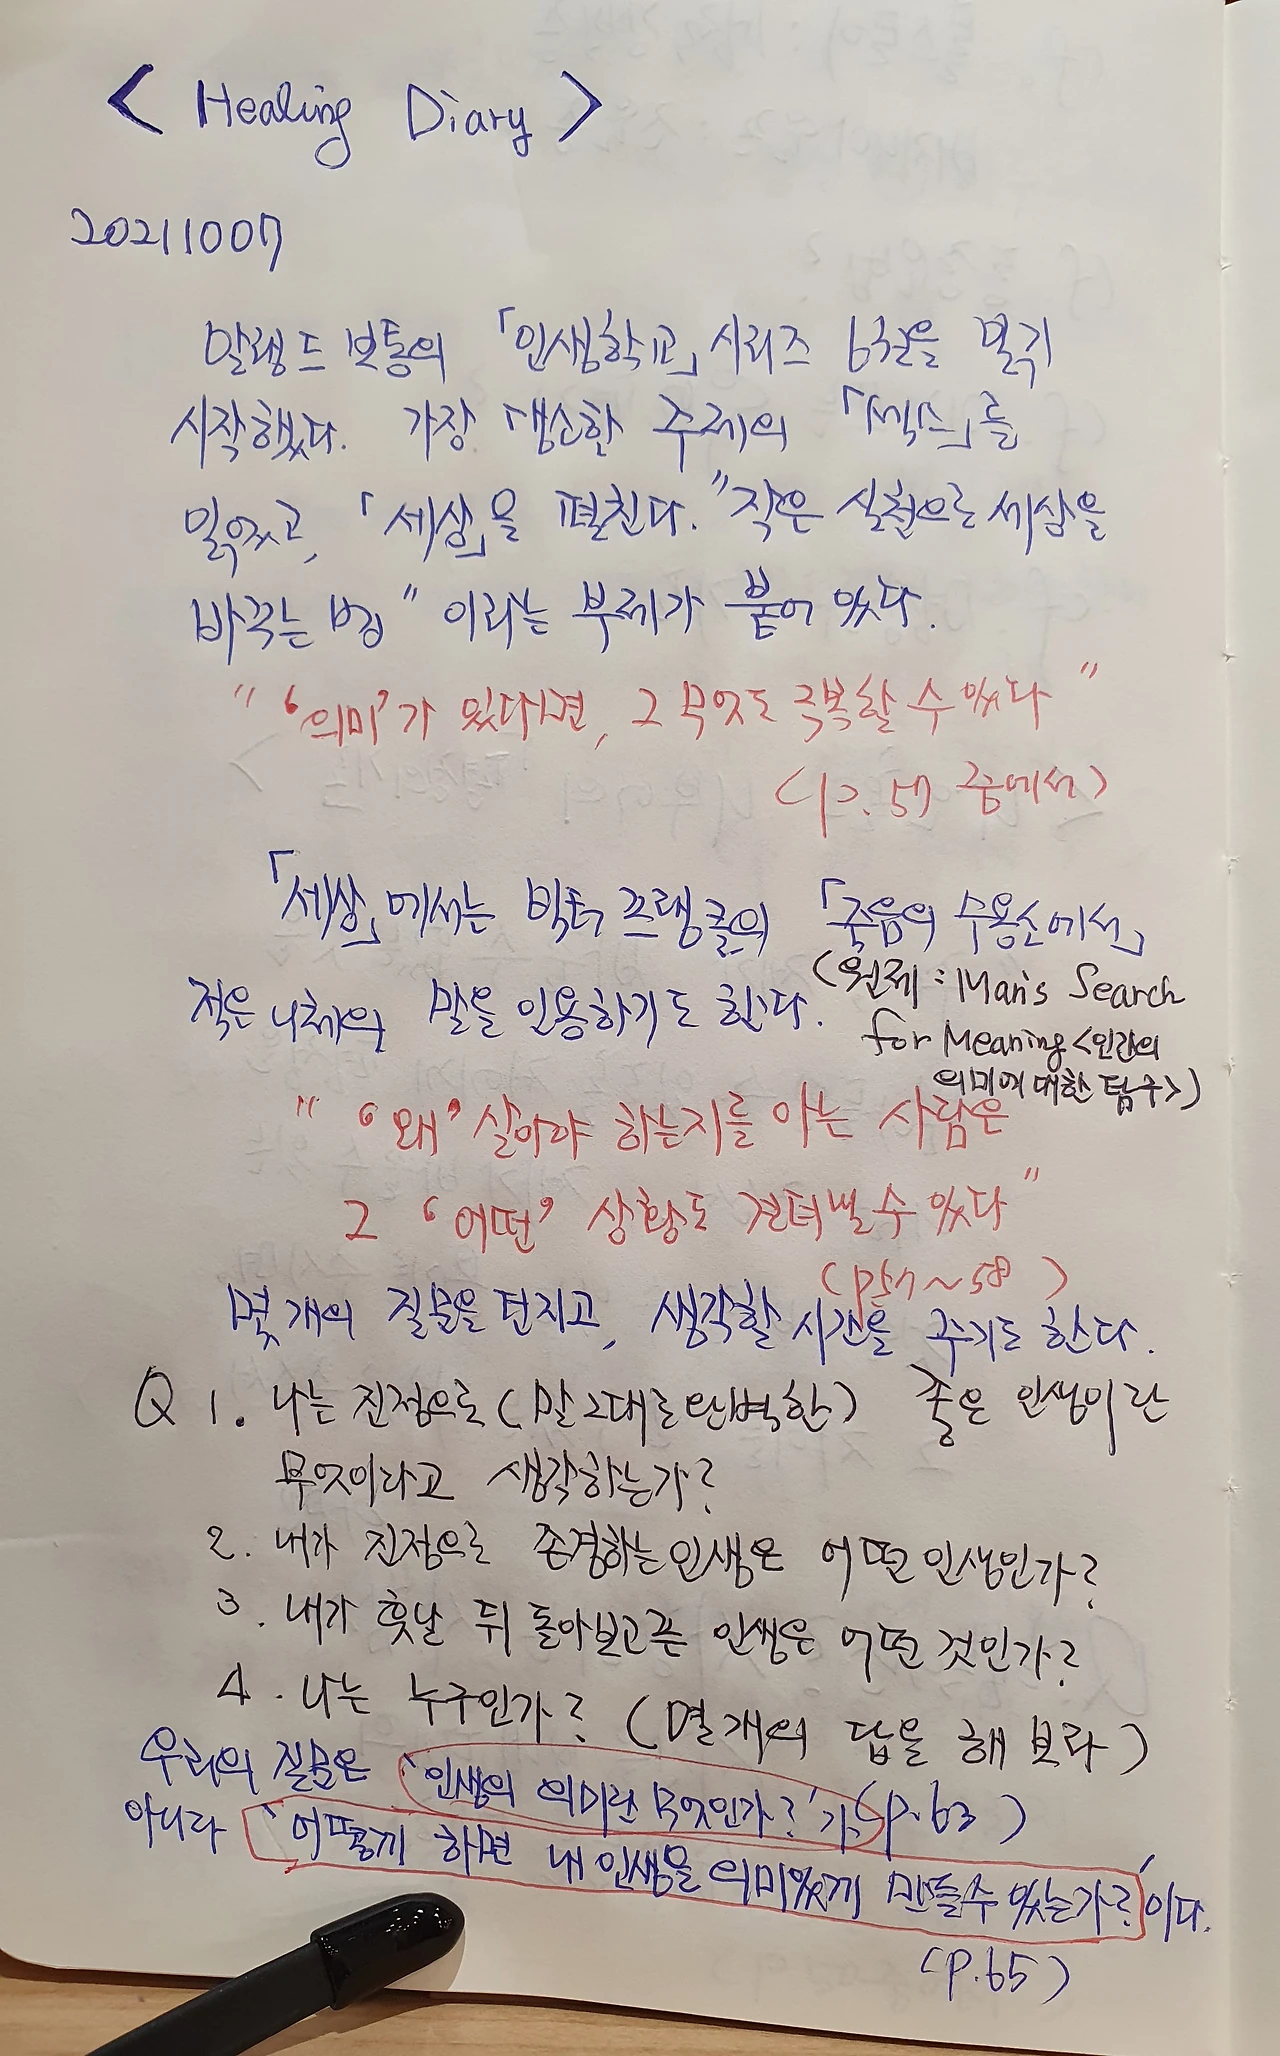 < Healing Diary >
20211007
알랭 드 보통의 「인생학교」 시리즈 6권을 읽기
시작했다. 가장 생소한 주제의 「섹스」를
읽었고, 「세상」을 펼친다. "작은 실천으로 세상을
바꾸는 법" 이라는 부제가 붙어 있다.
" '의미'가 있다면, 그 무엇도 극복할 수 있다 "
(p. 57 중에서)
「세상」에서는 빅터 프랭클의 「죽음의 수용소에서」
(원제 : Man's Search
적은 니체의 말을 인용하기도 한다.
for Meaning <인간의
의미에 대한 탐구>)
" '왜' 살아야 하는지를 아는 사람은
그 '어떤' 상황도 견뎌낼 수 있다 "
(p57~58)
몇 개의 질문을 던지고, 생각할 시간을 주기도 한다.
Q 1. 나는 진정으로 (말 그대로 완벽한) 좋은 인생이란
무엇이라고 생각하는가?
2. 내가 진정으로 존경하는 인생은 어떤 인생인가?
3. 내가 훗날 뒤 돌아보고픈 인생은 어떤 것인가?
4. 나는 누구인가? (열 개의 답을 해 보라)
우리의 질문은 '인생의 의미란 무엇인가?'가 (p.63)
아니라 '어떻게 하면 내 인생을 의미있게 만들 수 있는가?'이다.
(p.65)